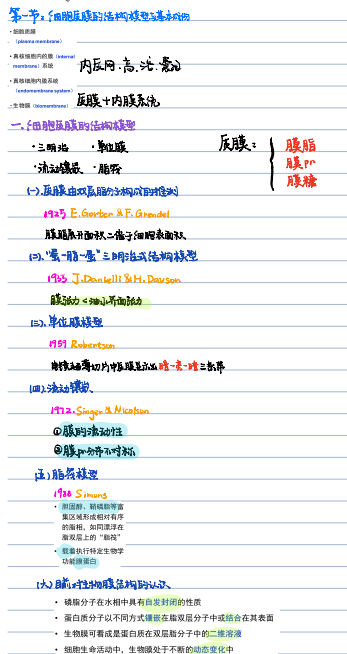 第一节:细胞质膜的结构模型与基本成分
• 细胞质膜
(plasma membrane)
• 真核细胞内的膜(internal
membrane)系统
内质网.高.池.
• 真核细胞内膜系统
(endomembrane system)
• 生物膜(biomembrane)
质膜+内膜系统
一.细胞质膜的结构模型
·三明治 ·单位膜
·流动镶嵌 ·脂筏
质膜:
膜脂
膜pr
膜糖
(一).质膜由双层脂分子构成的推测
1925 E.Gorter & F.Grendel
膜脂展开面积二倍于细胞表面积
(二)."蛋-脂-蛋"三明治式结构模型
1935 J.Danielli & H.Davson
膜张力<油水界面张力
(三).单位膜模型
1959 Robertson
超薄切片中质膜显示出暗-亮-暗三条带
(四).流动镶嵌
1972. Singer & Nicolson
①膜的流动性
②膜pr分布不对称
(五)脂筏模型
1988 Simons
• 胆固醇、鞘磷脂等富
集区域形成相对有序
的脂相,如同漂浮在
脂双层上的"脂筏"
• 载着执行特定生物学
功能膜蛋白
(六)目前对生物膜结构的认识
• 磷脂分子在水相中具有自发封闭的性质
• 蛋白质分子以不同方式镶嵌在脂双层分子中或结合在其表面
• 生物膜可看成是蛋白质在双层脂分子中的二维溶液
• 细胞生命活动中,生物膜处于不断的动态变化中